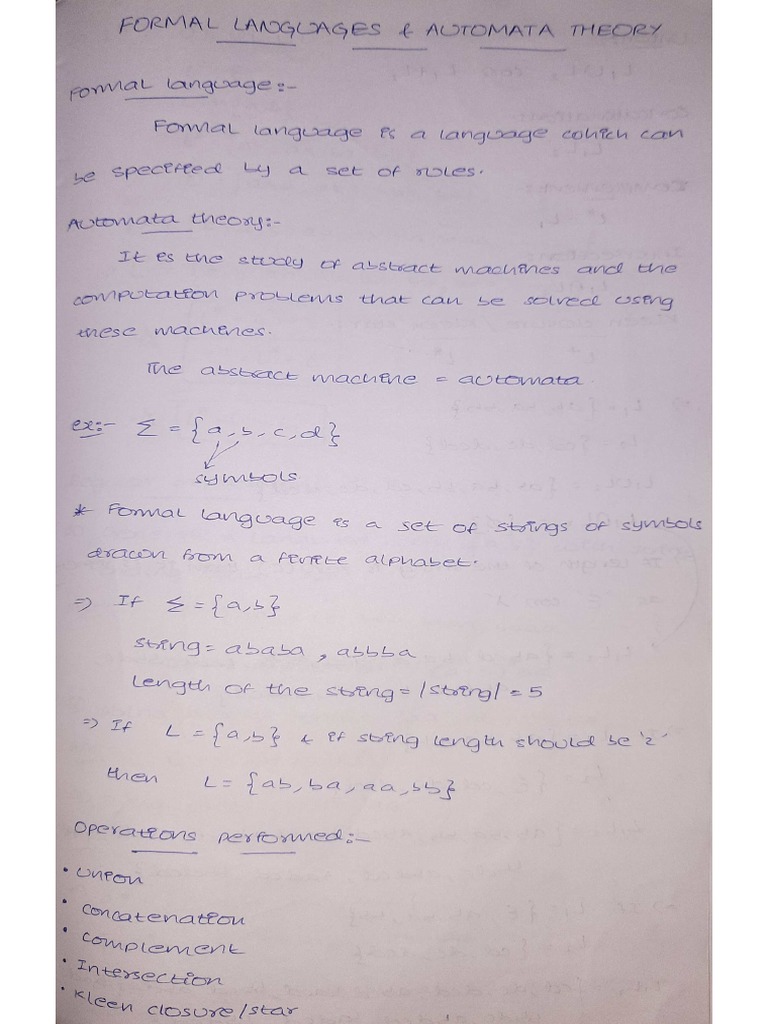 FORMAL LANGUAGES & AUTOMATA THEORY
Formal language:-
Formal language is a language which can
be specified by a set of rules.
Automata theory:-
It is the study of abstract machines and the
computation problems that can be solved using
these machines.
The abstract machine = automata
ex:- Σ = {a, b, c, d}
symbols
* Formal language is a set of strings of symbols
drawn from a finite alphabet.
=> If Σ = {a, b}
string = ababa, abbba
Length of the string = |string| = 5
=> If L = {a, b} & if string length should be '2'
then L = {ab, ba, aa, bb}
Operations performed:-
• Union
• Concatenation
• Complement
• Intersection
• Kleen closure/star